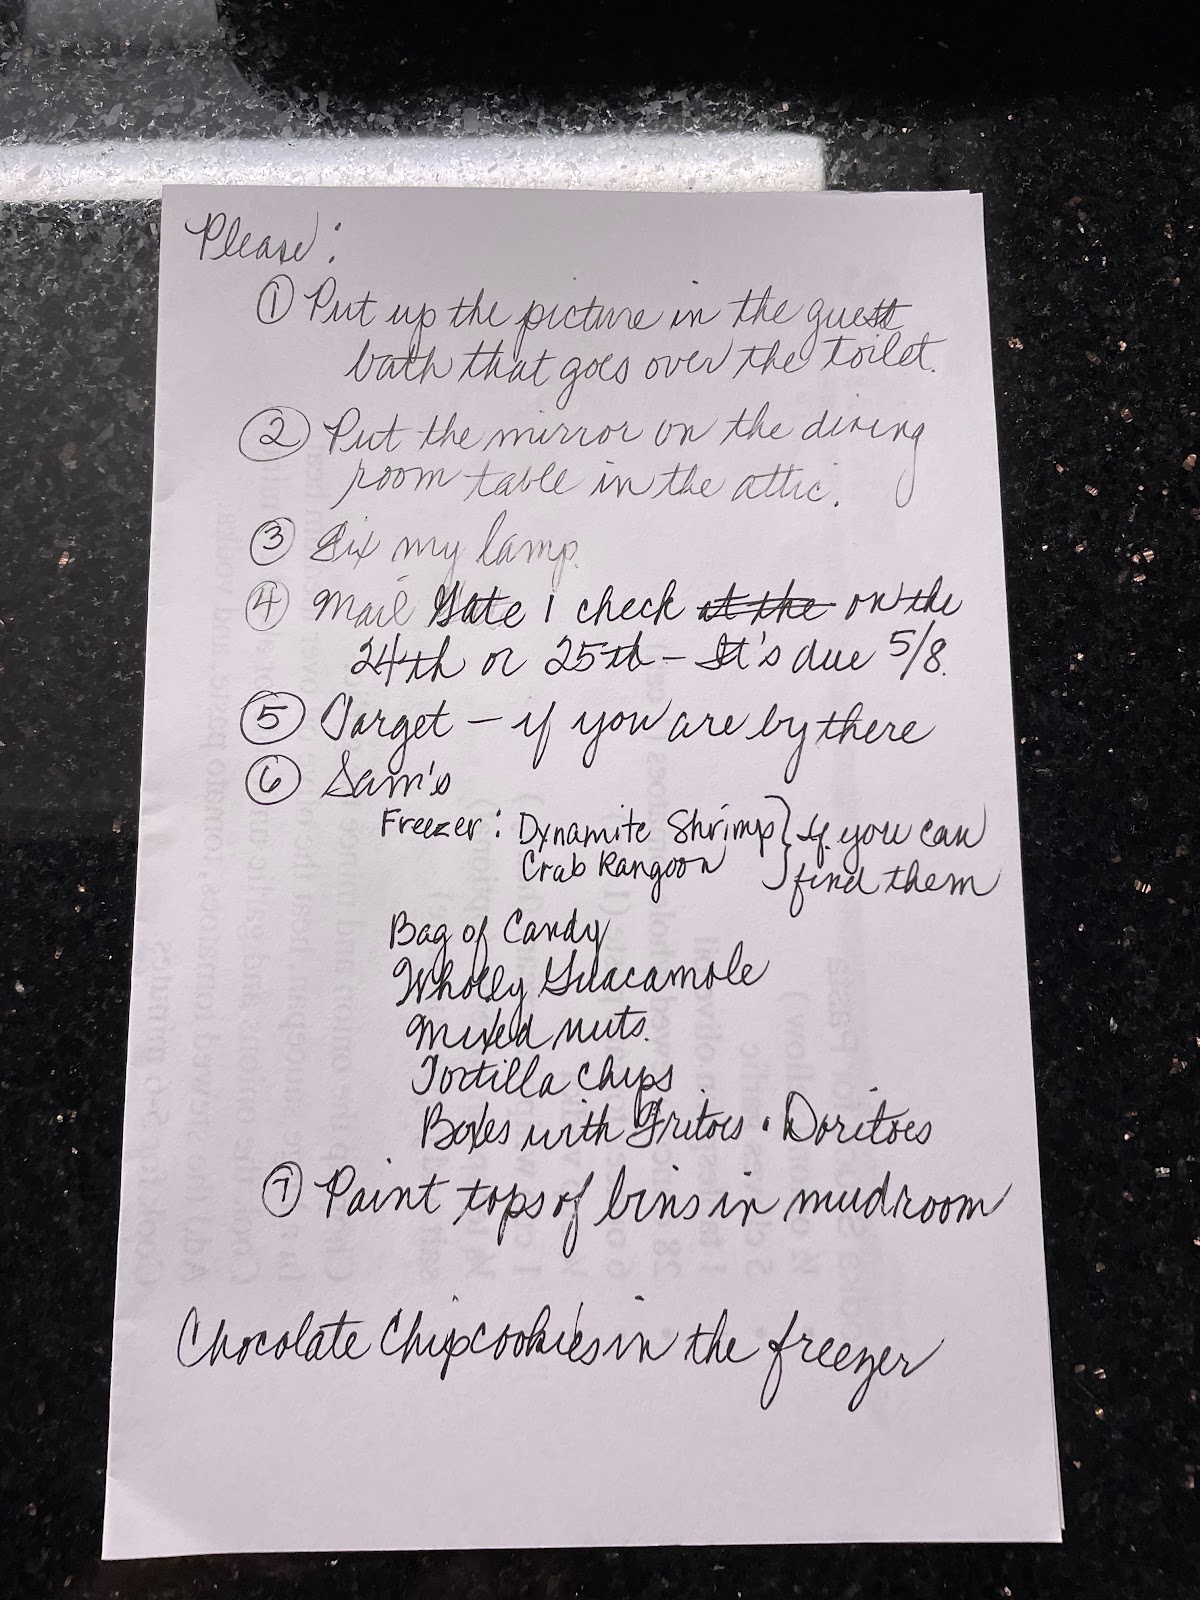 Please:
① Put up the picture in the guest
bath that goes over the toilet.
② Put the mirror on the dining
room table in the attic.
③ Fix my lamp.
④ Mail Gate 1 check at the on the
24th or 25th – It's due 5/8.
⑤ Target – if you are by there
⑥ Sam's
Freezer: Dynamite Shrimp } If you can
Crab Rangoon } find them
Bag of Candy
Wholly Guacamole
Mixed nuts.
Tortilla Chips
Boxes with Fritoes • Doritoes
⑦ Paint tops of bins in mudroom
Chocolate Chip cookies in the freezer